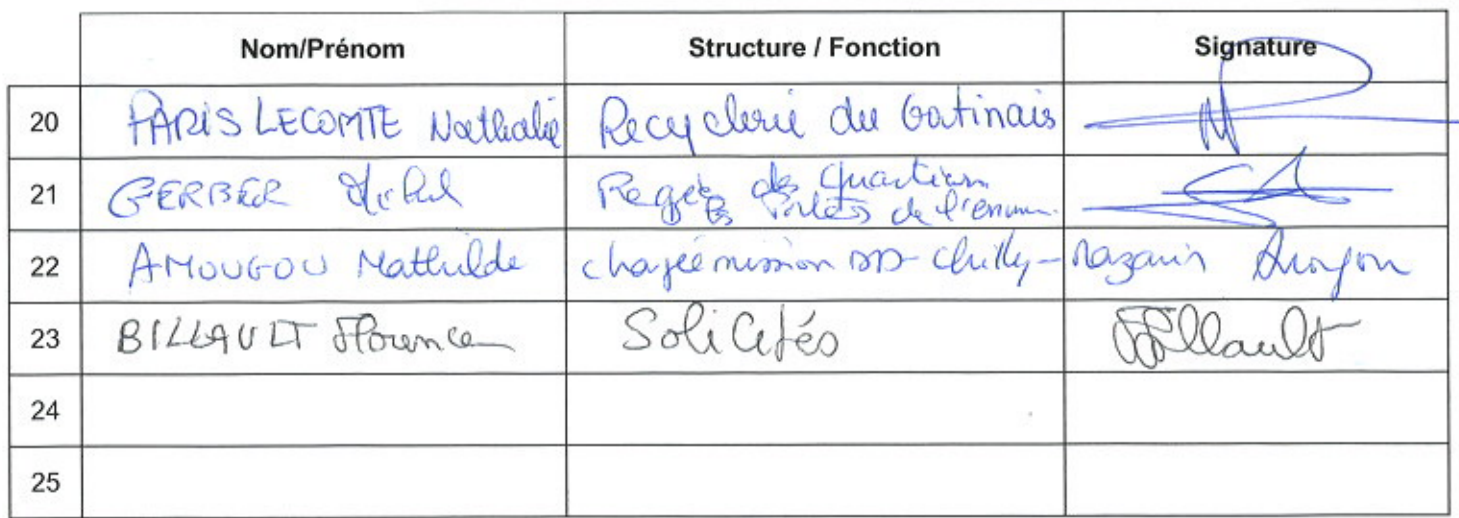 Nom/Prénom Structure / Fonction Signature
20 PARIS LECOMTE Nathalie Recyclerie du Gatinais
21 GERBER Michel Regie de Quartiers
Les Portes de l'
22 AMOUGOU Mathilde chargée mission DD Chilly-Mazarin
23 BILLAULT Florence SoliCités Billault
24
25